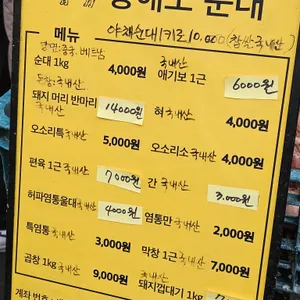 순대
메뉴 야채순대 1키로 10,000 (찹쌀국내산)
당면:중국, 베트남
순대 1kg 4,000원
돈창:국내산
국내산
애기보 1근 6000원
돼지 머리 반마리 14000원
국내산
혀 국내산 4,000원
오소리특 국내산 5,000원
오소리소 국내산 4,000원
편육 1근 국내산 7000원
간 국내산 3.000원
허파염통울대 국내산 4000원
염통만 국내산 2,000원
특염통 국내산 3,000원
막창 1근 국내산 7,000원
곱창 1kg 국내산 9,000원
국내산
돼지껍대기 1kg
계좌 번호